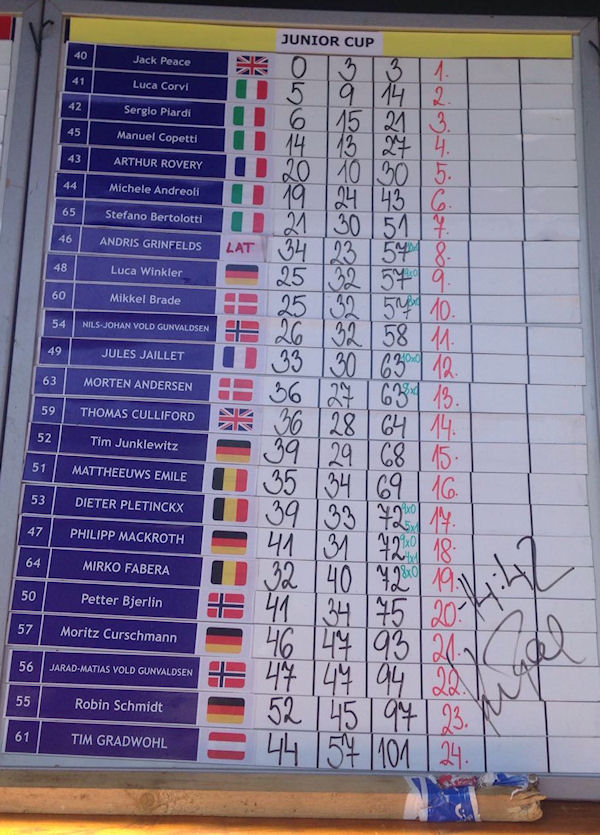 JUNIOR CUP
40 Jack Peace 0 3 3 1.
41 Luca Corvi 5 9 14 2.
42 Sergio Piardi 6 15 21 3.
45 Manuel Copetti 14 13 27 4.
43 ARTHUR ROVERY 20 10 30 5.
44 Michele Andreoli 19 24 43 6.
65 Stefano Bertolotti 21 30 51 7.
46 ANDRIS GRINFELDS LAT 34 23 57 8.
48 Luca Winkler 25 32 57 9x0 9.
60 Mikkel Brade 25 32 57 8x0 10.
54 NILS-JOHAN VOLD GUNVALDSEN 26 32 58 11.
49 JULES JAILLET 33 30 63 10x0 12.
63 MORTEN ANDERSEN 36 27 63 8x0 13.
59 THOMAS CULLIFORD 36 28 64 14.
52 Tim Junklewitz 39 29 68 15.
51 MATTHEEUWS EMILE 35 34 69 16.
53 DIETER PLETINCKX 39 33 72 9x0 5x1 17.
47 PHILIPP MACKROTH 41 31 72 9x0 4x1 18.
64 MIRKO FABERA 32 40 72 8x0 19.
50 Petter Bjerlin 41 34 75 20.
14:42
57 Moritz Curschmann 46 47 93 21.
56 JARAD-MATIAS VOLD GUNVALDSEN 47 47 94 22.
55 Robin Schmidt 52 45 97 23.
61 TIM GRADWOHL 44 57 101 24.